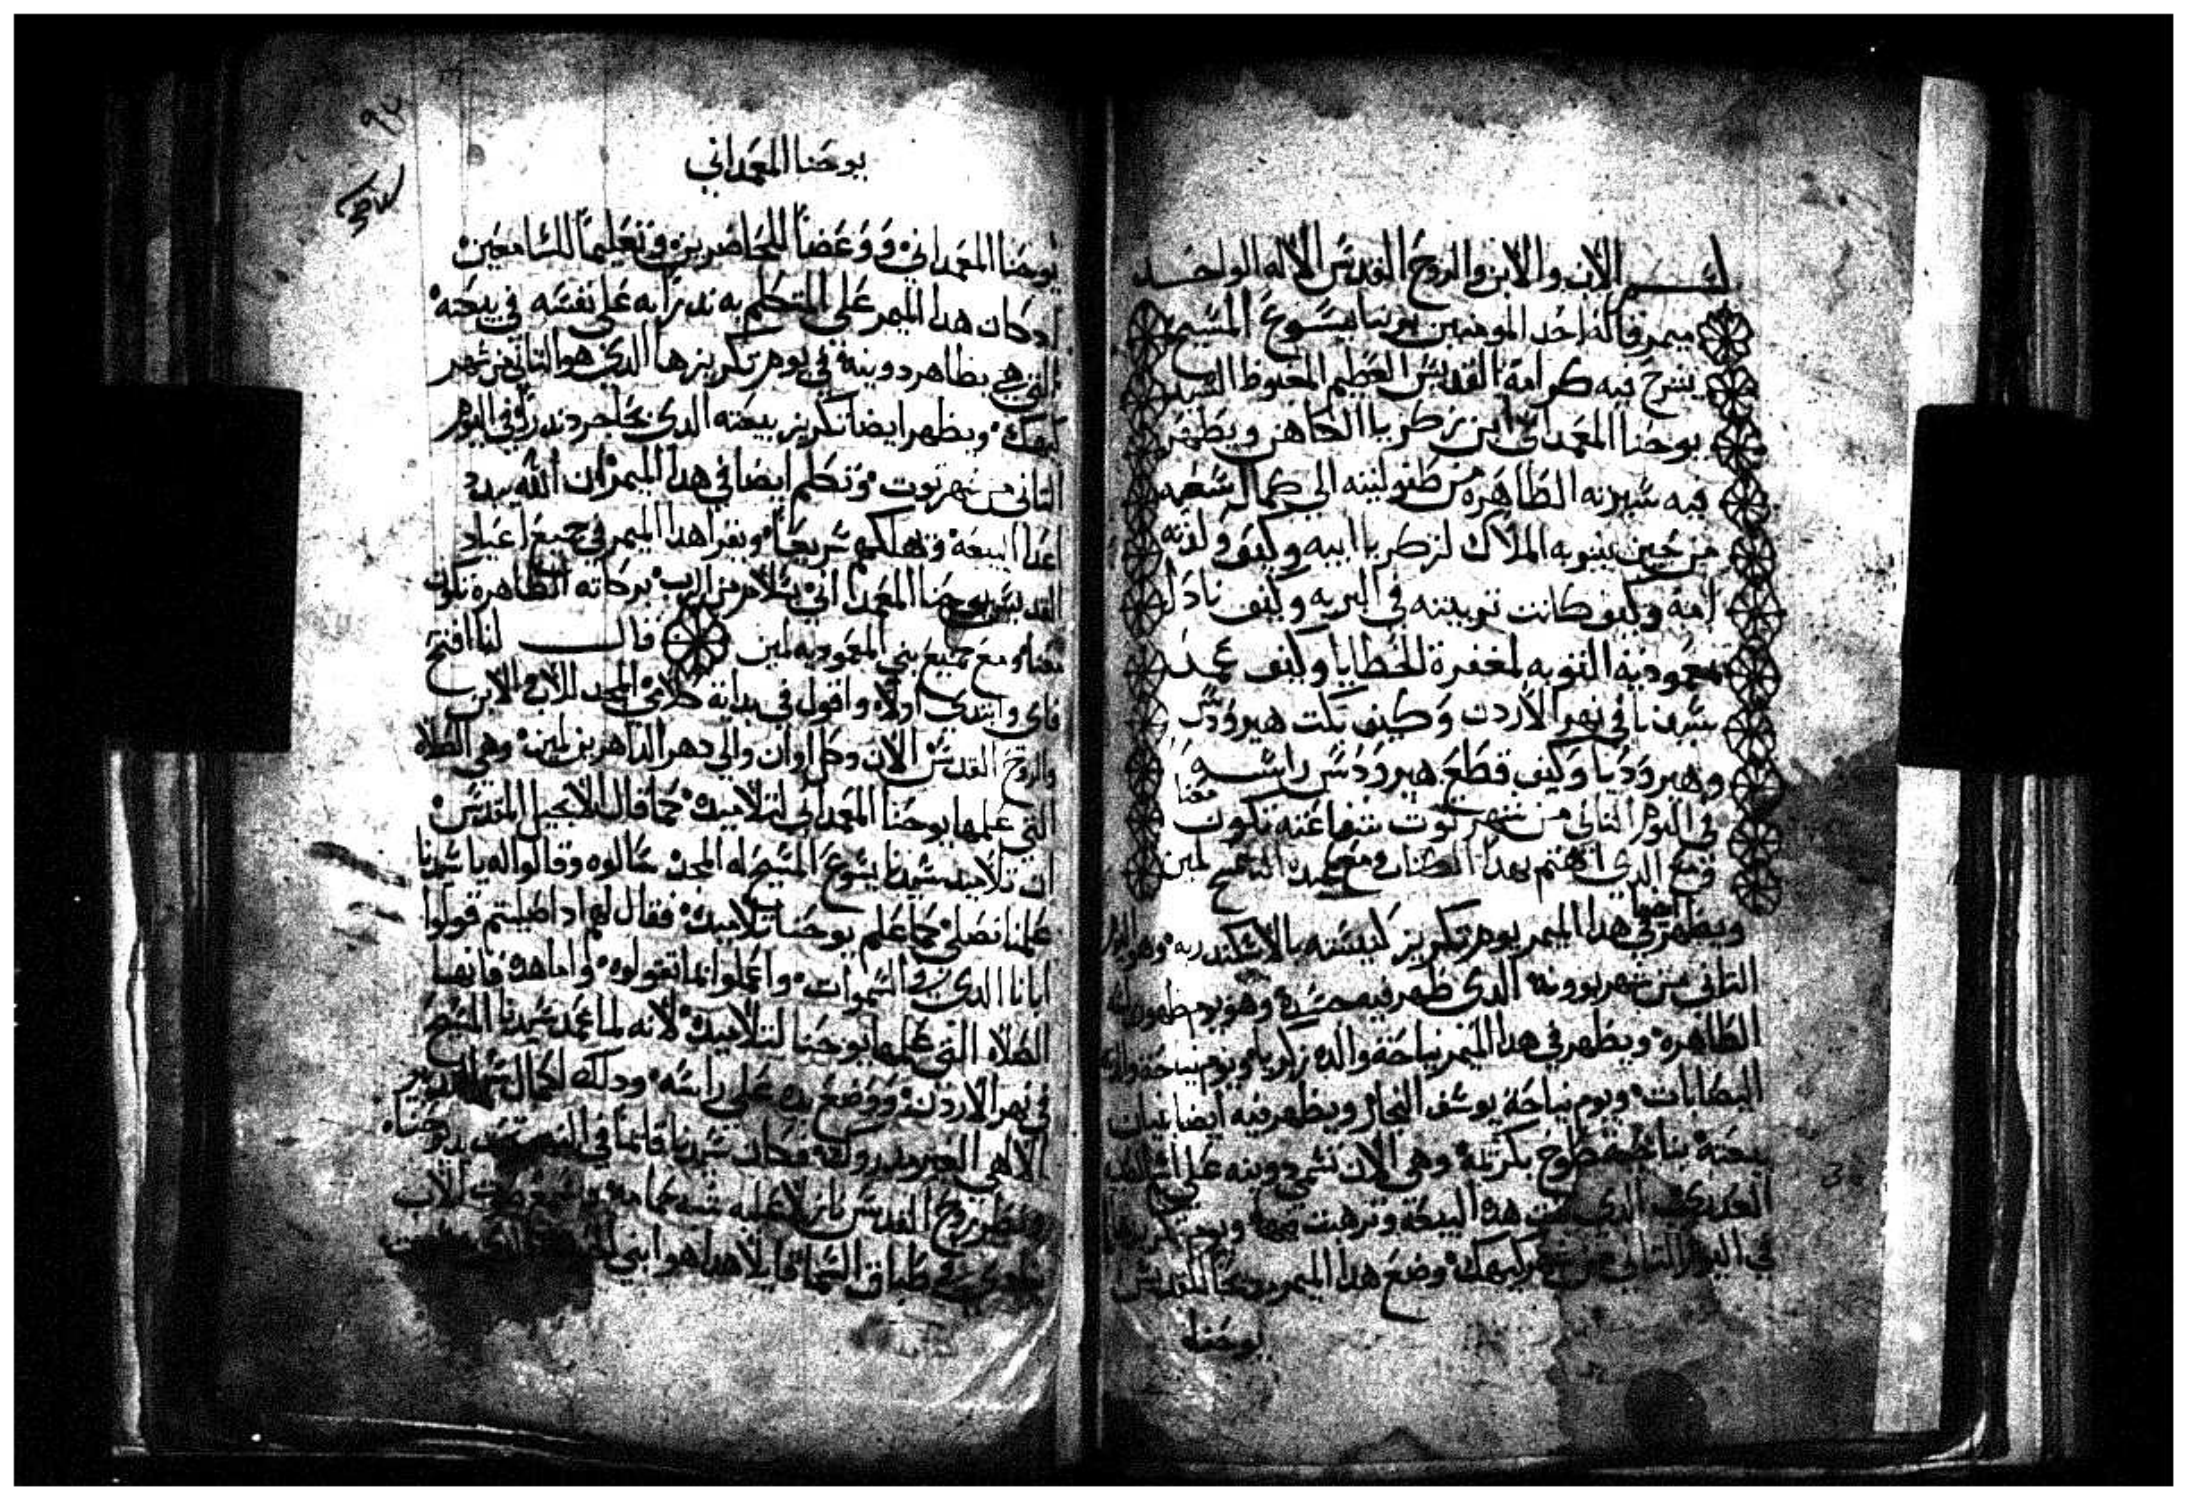 بسم الاب والابن والروح القدس الاله الواحد
ميمر قاله احد المومنين بربنا يسوع المسيح
يشرح فيه كرامة القديس العظيم المغبوط السيد
يوحنا المعمداني ابن زكريا الكاهن ويظهر
فيه سيرته الطاهره من طفوليته الي كمال سعيه
من حين بشر به الملاك لزكريا ابيه وكيف ولدته
امه وكيف كانت تربيته في البريه وكيف نادا
بمعمودية التوبه لمغفرة الخطايا وكيف عمد
سيدنا في نهر الاردن وكيف بكت هيرودس
وهيروديا وكيف قطع هيرودس راسه
في اليوم الثاني من شهر توت شفاعته تكون معنا
ومع الذي اهتم بهدا الكتاب ومع الجميع امين
ويظهر ايضا في هدا الميمر يوم تكريز كنيسته بالاسكندريه وهو اليوم
التاني من شهر بوونه الدي ظهر فيه جسده وهو يوم ظهور
الطاهره ويظهر في هدا الميمر نياحة والده زكريا ويوم نياحة
اليصابات ويوم نياحة يوسف النجار ويظهر فيه ايضا بنيان
بيعته بناحية وهي الان تسمي دوينه علي اسم
الدي هده البيعه وترهبت فيها ويوم تكريزها
في اليوم التاني من شهر كيهك وضع هدا الميمر مدحا للقديس
يوحنا
يوحنا المعمداني
يوحنا المعمداني ووعضا للحاضرين وتعليما للسامعين
اد كان هدا الميمر علي المتكلم به ندرا به علي نفسه في بيعته
التي هي بظاهر دوينه في يوم تكريزها الدي هو التاني من شهر
كيهك ويظهر ايضا تكريز بيعته الدي في اليوم
التاني من شهر توت وتكلم ايضا في هدا الميمر ان الله يبيد
اعدا البيعه ويهلكهم سريعا ويقرا هدا الميمر في جميع اعياد
القديس يوحنا المعمداني بسلام من الرب بركاته الطاهره تكون
معنا ومع جميع بني المعموديه امين قال لنا افتح
فاي وابتدي اولا واقول في بداية كلامي المجد للاب والابن
والروح القدس الان وكل اوان والي دهر الداهرين امين وهي الصلاه
التي علمها يوحنا المعمداني لتلاميده كما قال الانجيل المقدس
ان تلاميد سيدنا يسوع المسيح له المجد سالوه وقالوا له يا سيدنا
علمنا نصلي كما علم يوحنا تلاميده فقال لهم ادا صليتم قولوا
ابانا الدي في السموات واعملوا انما تقولوه واما هده فانها
الصلاه التي علمها يوحنا لتلاميده لانه لما عمد سيدنا المسيح
في نهر الاردن ووضع يده علي راسه ودلك لكمال التدبير
الالهي الغير مدروك فكان سيدنا قايما في يوحنا
ونظر روح القدس نازلا عليه شبه حمامه وسمع صوت الاب
في طباق السما قايلا هدا هو ابني